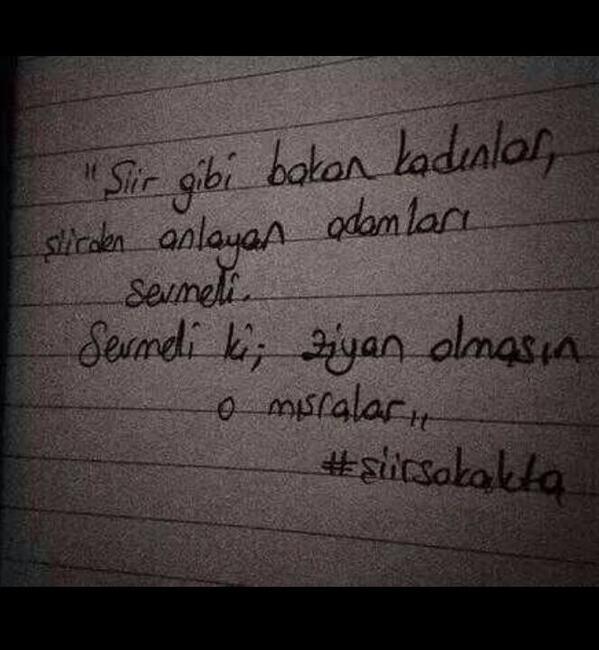 "Şiir gibi bakan kadınlar,
şiirden anlayan adamları
sevmeli.
Sevmeli ki; ziyan olmasın
o mısralar,,
#siirsokakta